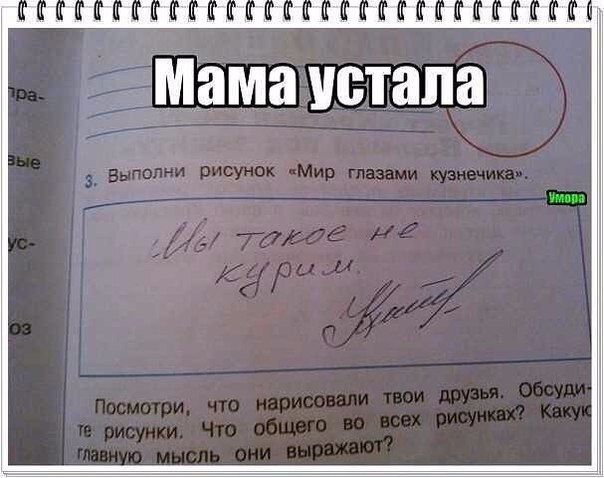 Мама устала
пра-
вые
3. Выполни рисунок «Мир глазами кузнечика».
Умора
Мы такое не
курим.
ус-
оз
Посмотри, что нарисовали твои друзья. Обсуди-
те рисунки. Что общего во всех рисунках? Какую
главную мысль они выражают?